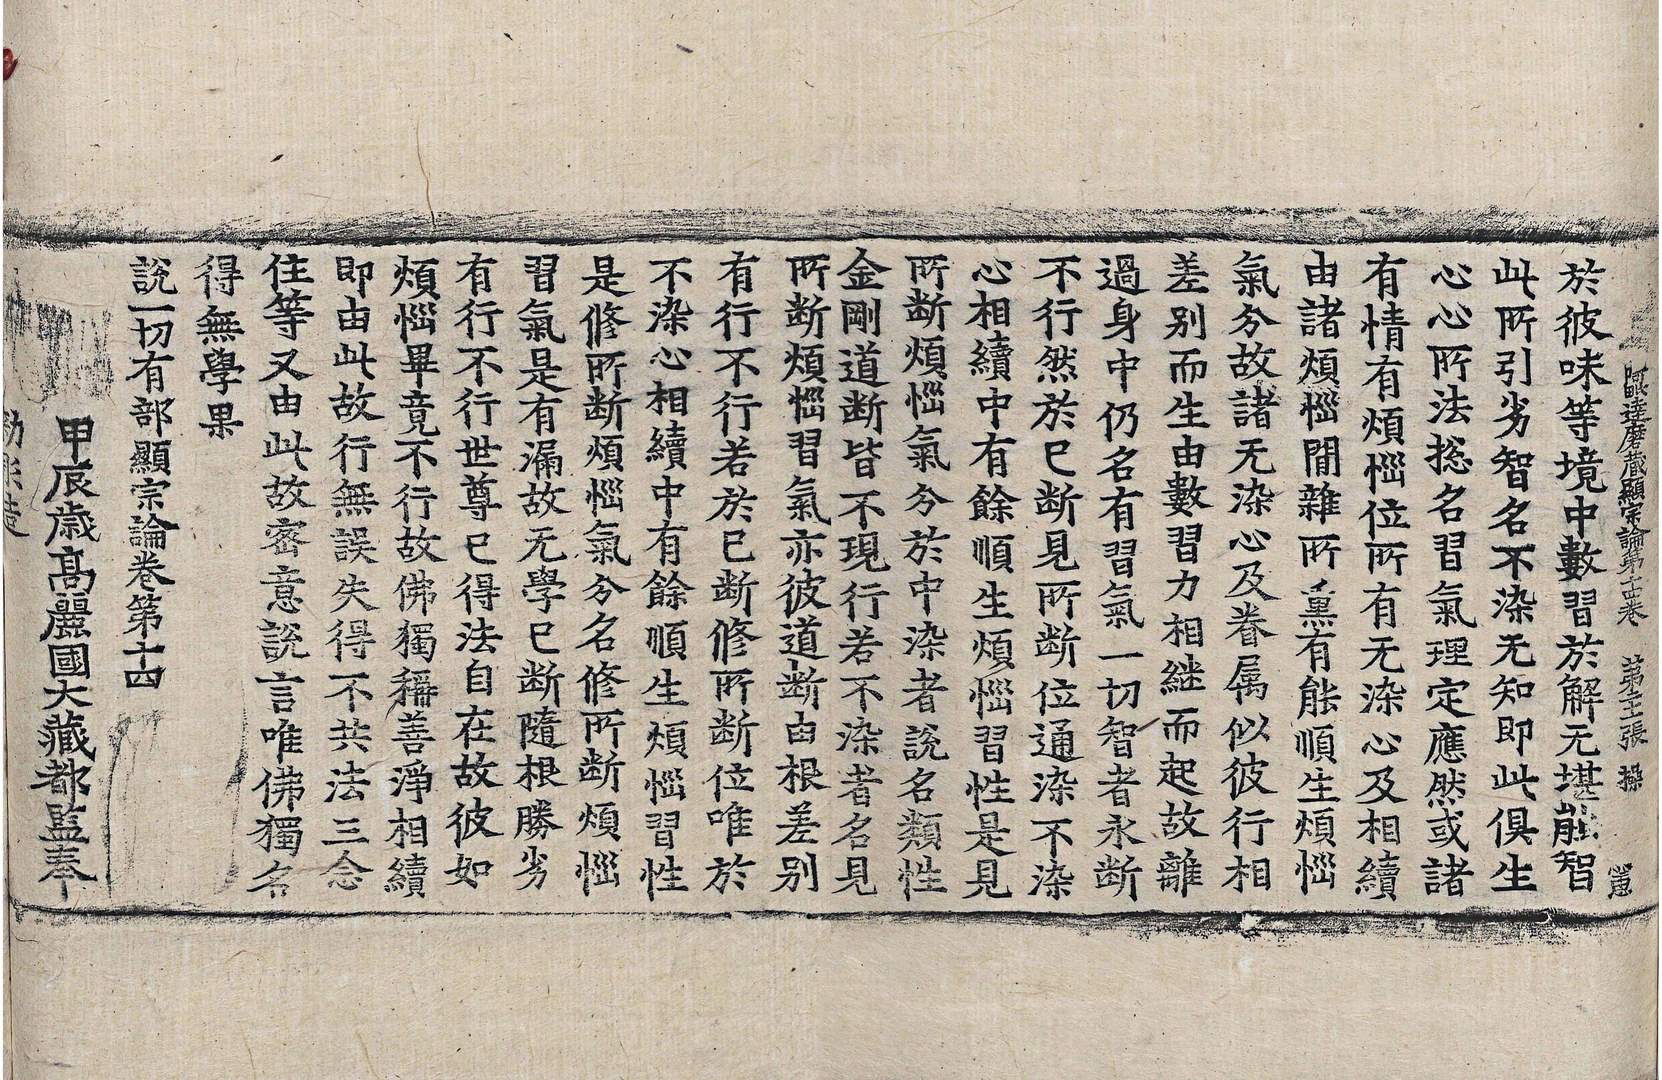 阿毗達磨藏顯宗論第十四卷 第三十張 㩲
於彼味等境中數習於解无堪能智
此所引劣智名不染无知即此俱生
心心所法捴名習氣理定應然或諸
有情有煩惱位所有无染心及相續
由諸煩惱間雜所熏有能順生煩惱
氣分故諸无染心及眷属似彼行相
差别而生由數習力相継而起故離
過身中仍名有習氣一切智者永断
不行然於已断見所断位通染不染
心相續中有餘順生煩惱習性是見
所断煩惱氣分於中染者說名類性
金剛道断皆不現行若不染者名見
所断煩惱習氣亦彼道断由根差别
有行不行若於已断修所断位唯於
不染心相續中有餘順生煩惱習性
是修所断煩惱氣分名修所断煩惱
習氣是有漏故无學已断隨根勝劣
有行不行世尊已得法自在故彼如
煩惱畢竟不行故佛獨稱善淨相續
即由此故行無誤失得不共法三念
住等又由此故密意說言唯佛獨名
得無學果
說一切有部顯宗論卷第十四
甲辰歲高麗國大藏都監奉
勑彫造